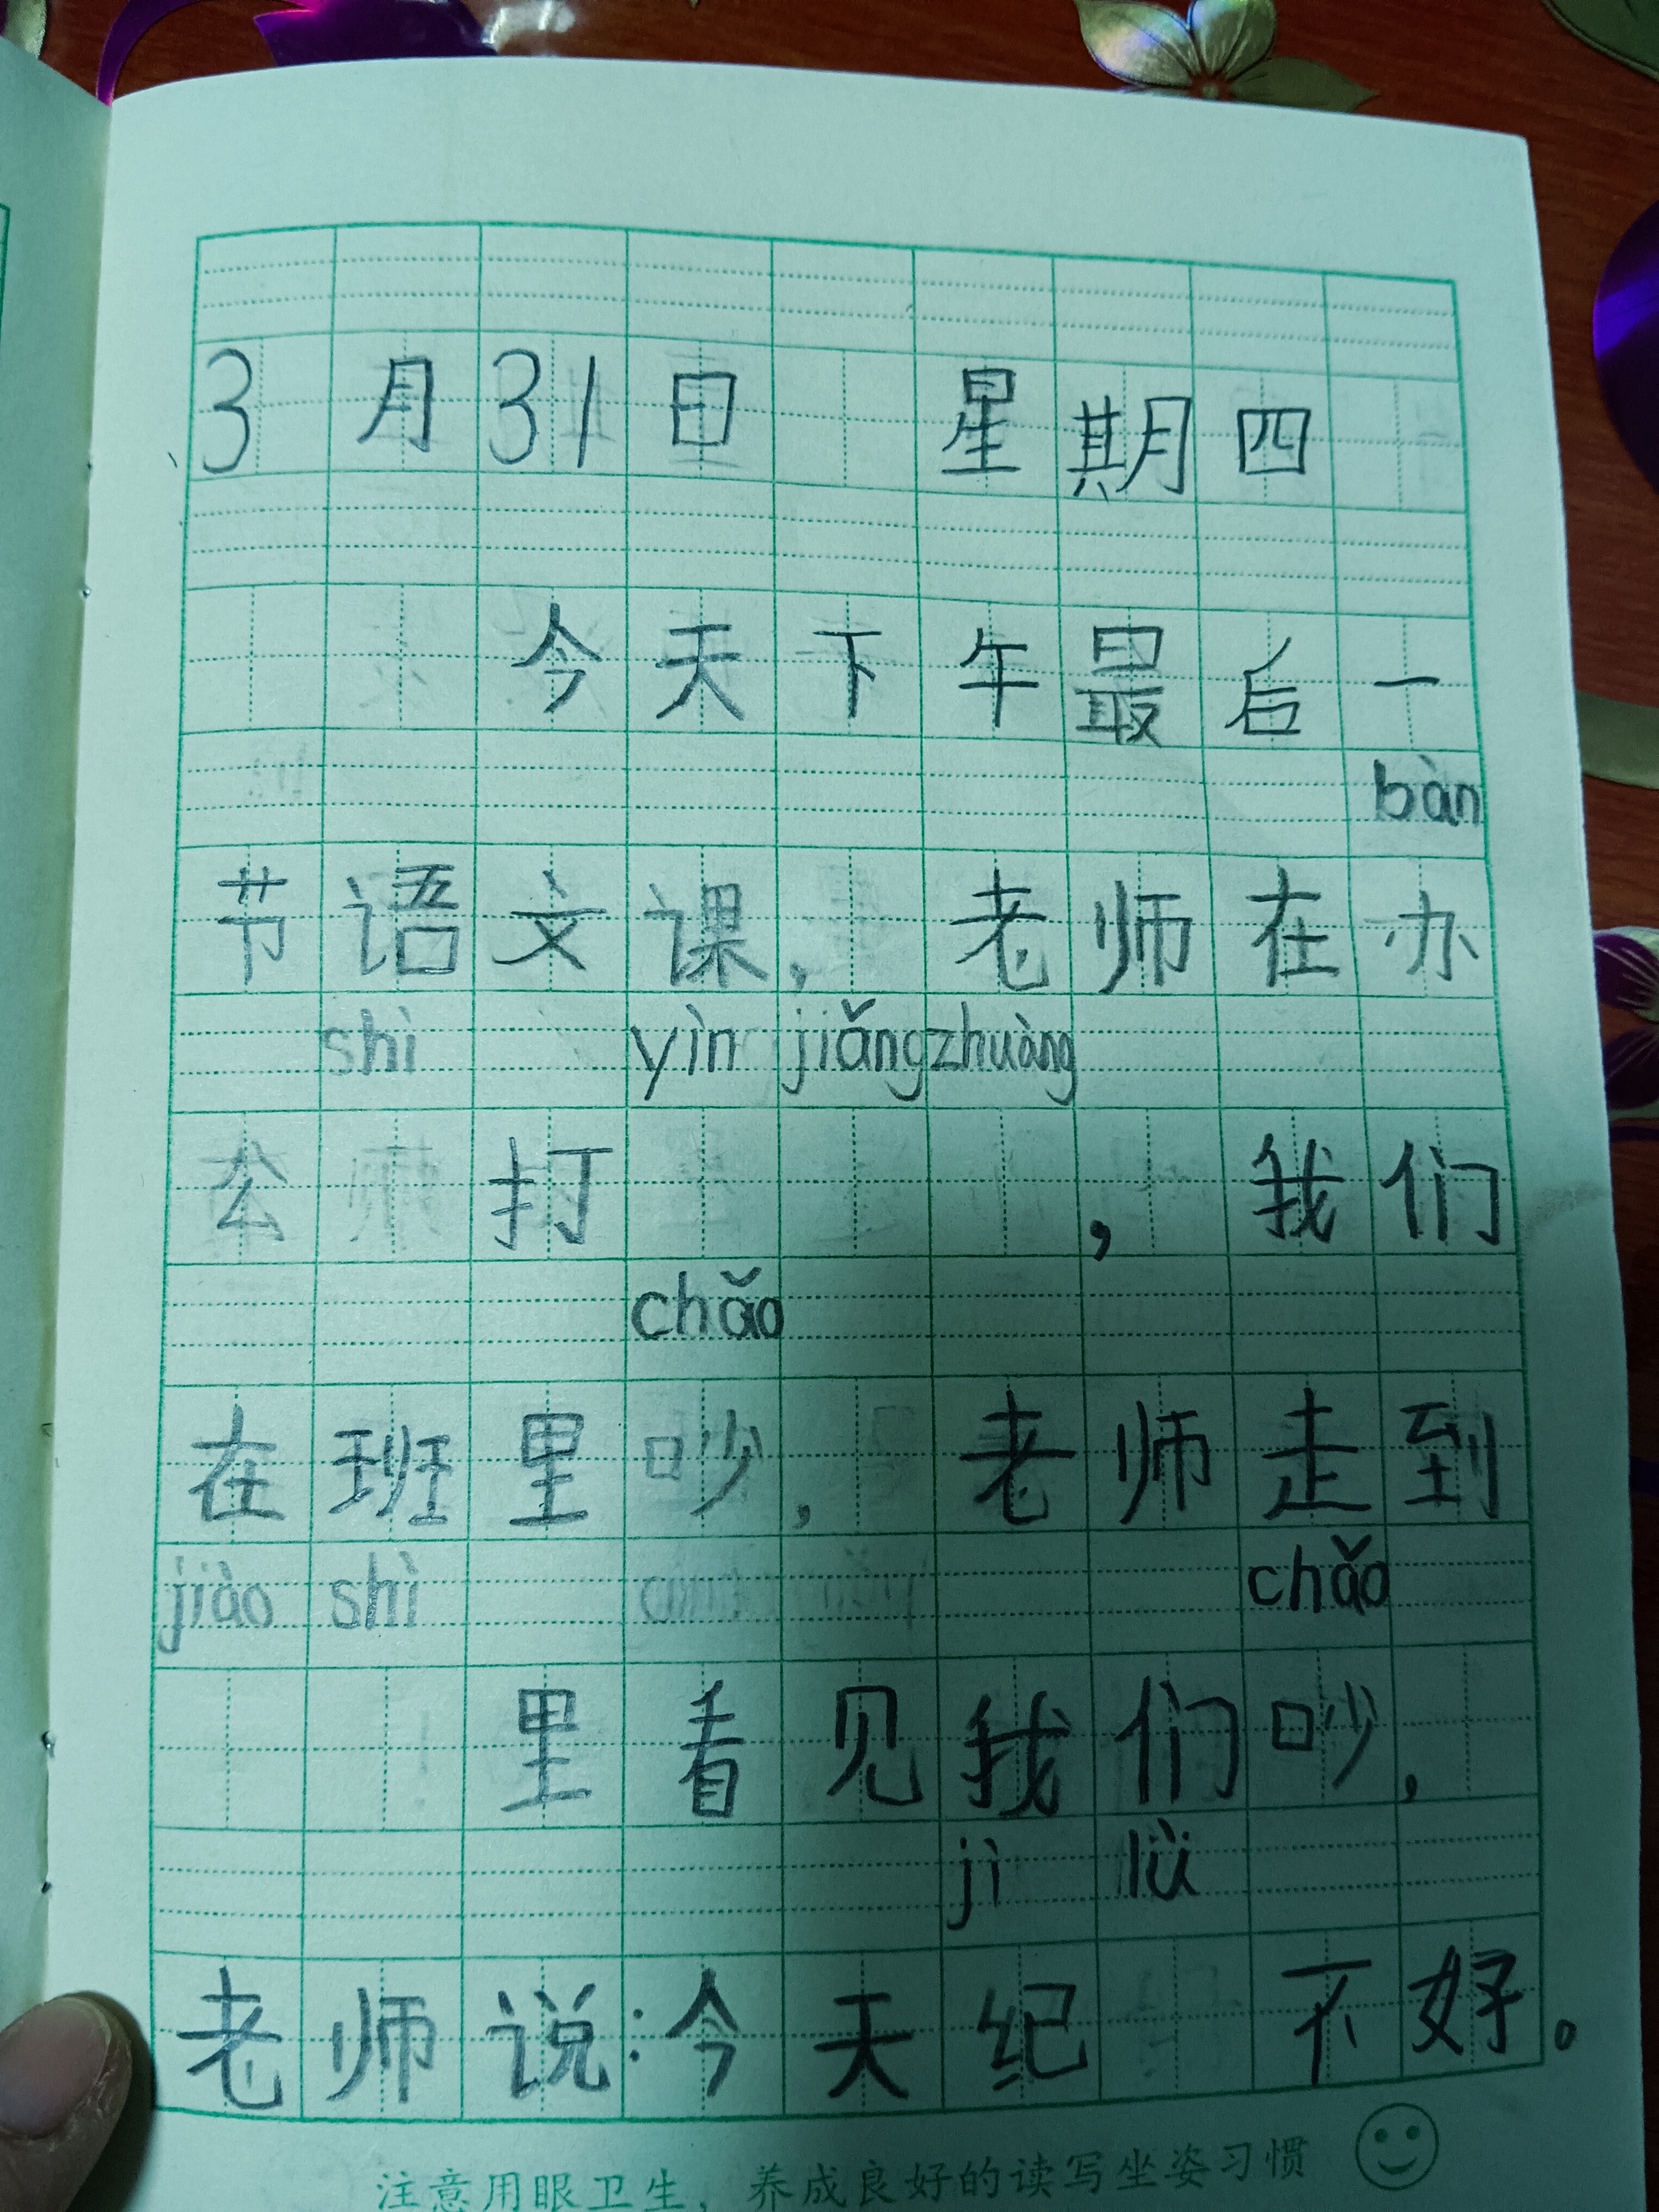 3月31日 星期四
今天下午最后一
bàn
节语文课，老师在办
shì yìn jiǎngzhuàng
公 打 ，我们
chǎo
在班里吵，老师走到
jiào shì chǎo
里看见我们吵，
jì lǜ
老师说：今天纪 不好。
注意用眼卫生，养成良好的读写坐姿习惯